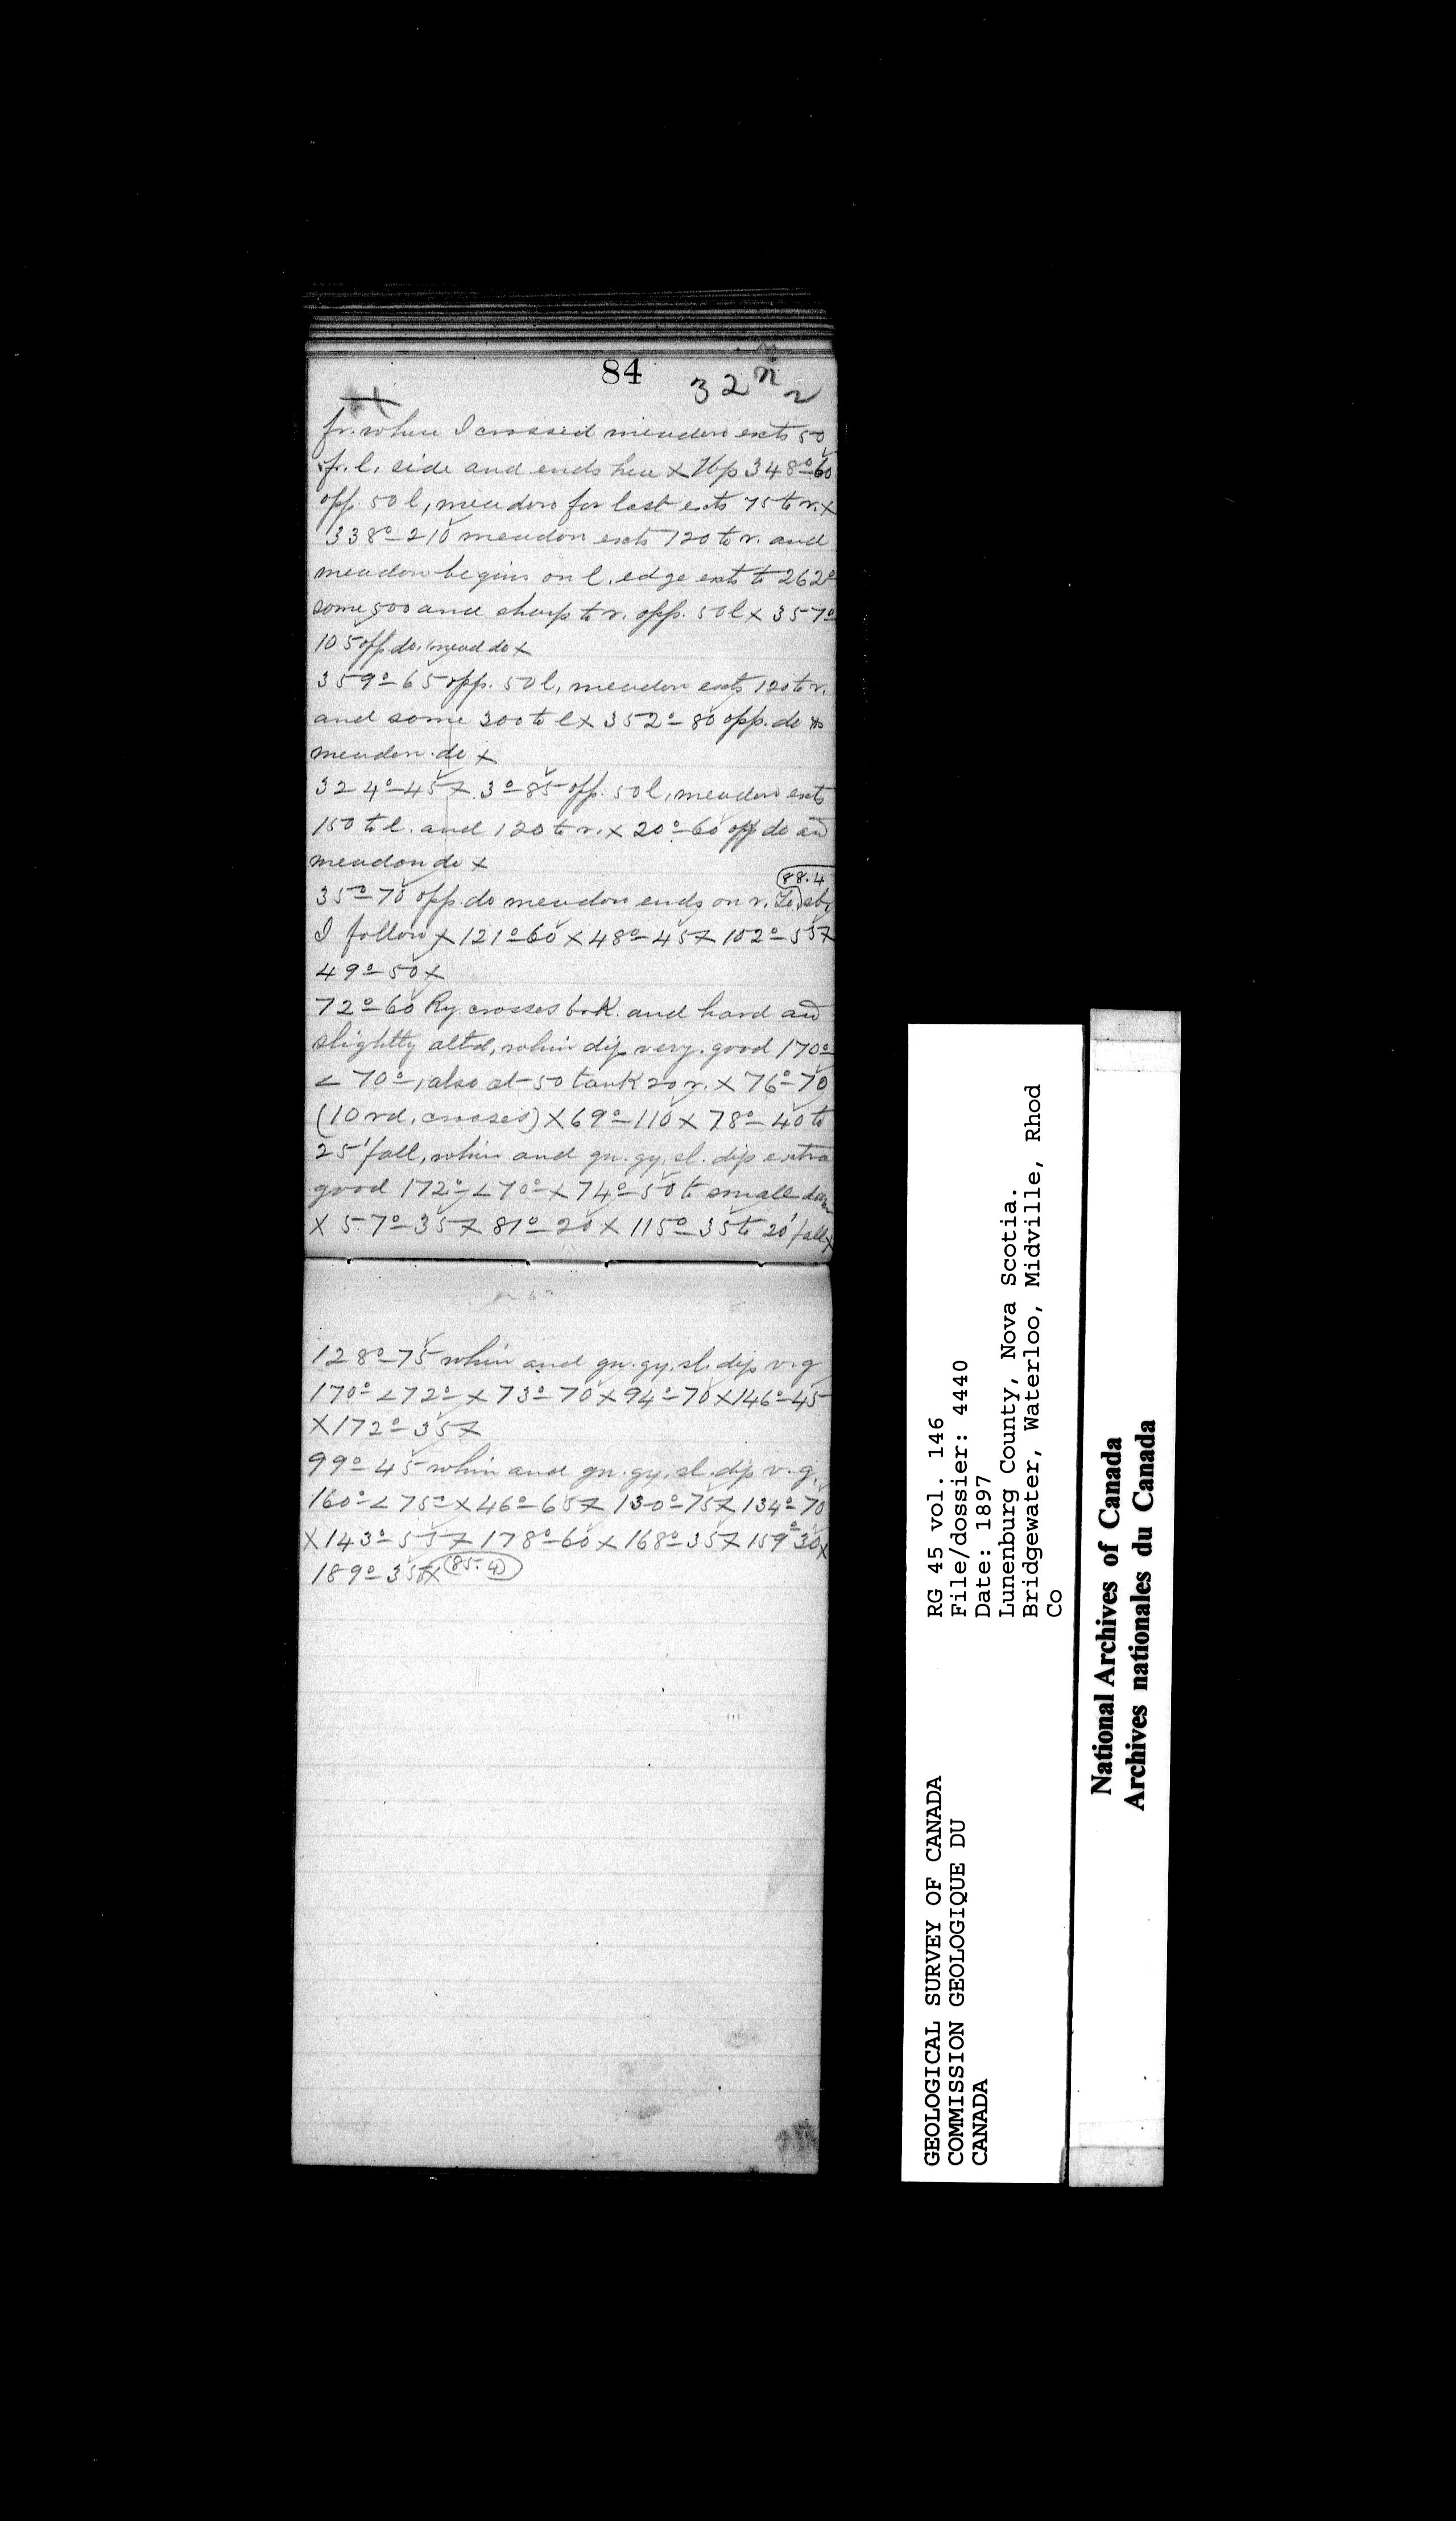 84
32 n 2
fr. where I crossed meadow exts 50
fr. l. side and ends here X Up 348°-60
opp. 50 l, meadow for last exts 75 to r. X
338°-210 meadow exts 120 to r. and
meadow begins on l. edge exts to 262°
some 500 and sharp to r. opp. 50 l X 357°
105 opp do. mead do X
359°-65 opp. 50 l, meadow exts 120 to r.
and some 300 to l X 352°-80 opp. do
meadow do X
324°-45 X 3°-85 opp. 50 l, meadow exts
150 to l. and 120 to r. X 20°-60 opp do and
meadow do X
88.4
35°-70 opp. do meadow ends on r.
I follow X 121°-60 X 48°-45 X 102°-55 X
49°-50 X
72°-60 Ry. crosses bk. and hard and
slightly altd, whin dip very good 170°
< 70°, also at 50 tank 20 r. X 76°-70
(10 rd. crosses) X 69°-110 X 78°-40 to
25' fall, whin and gn. gy. sl. dip extra
good 172° < 70° X 74°-50 to small dam
X 57°-35 X 81°-20 X 115°-35 to 20' fall X
128°-75 whin and gn. gy. sl. dip v. g
170° < 72° X 73°-70 X 94°-70 X 146°-45
X 172°-35 X
99°-45 whin and gn. gy. sl. dip v. g.
160° < 75° X 46°-65 X 130°-75 X 134°-70
X 143°-55 X 178°-60 X 168°-35 X 159°-30 X
189°-35 X (85.4)
GEOLOGICAL SURVEY OF CANADA
COMMISSION GEOLOGIQUE DU
CANADA
RG 45 vol. 146
File/dossier: 4440
Date: 1897
Lunenburg County, Nova Scotia.
Bridgewater, Waterloo, Midville, Rhod
Co
National Archives of Canada
Archives nationales du Canada